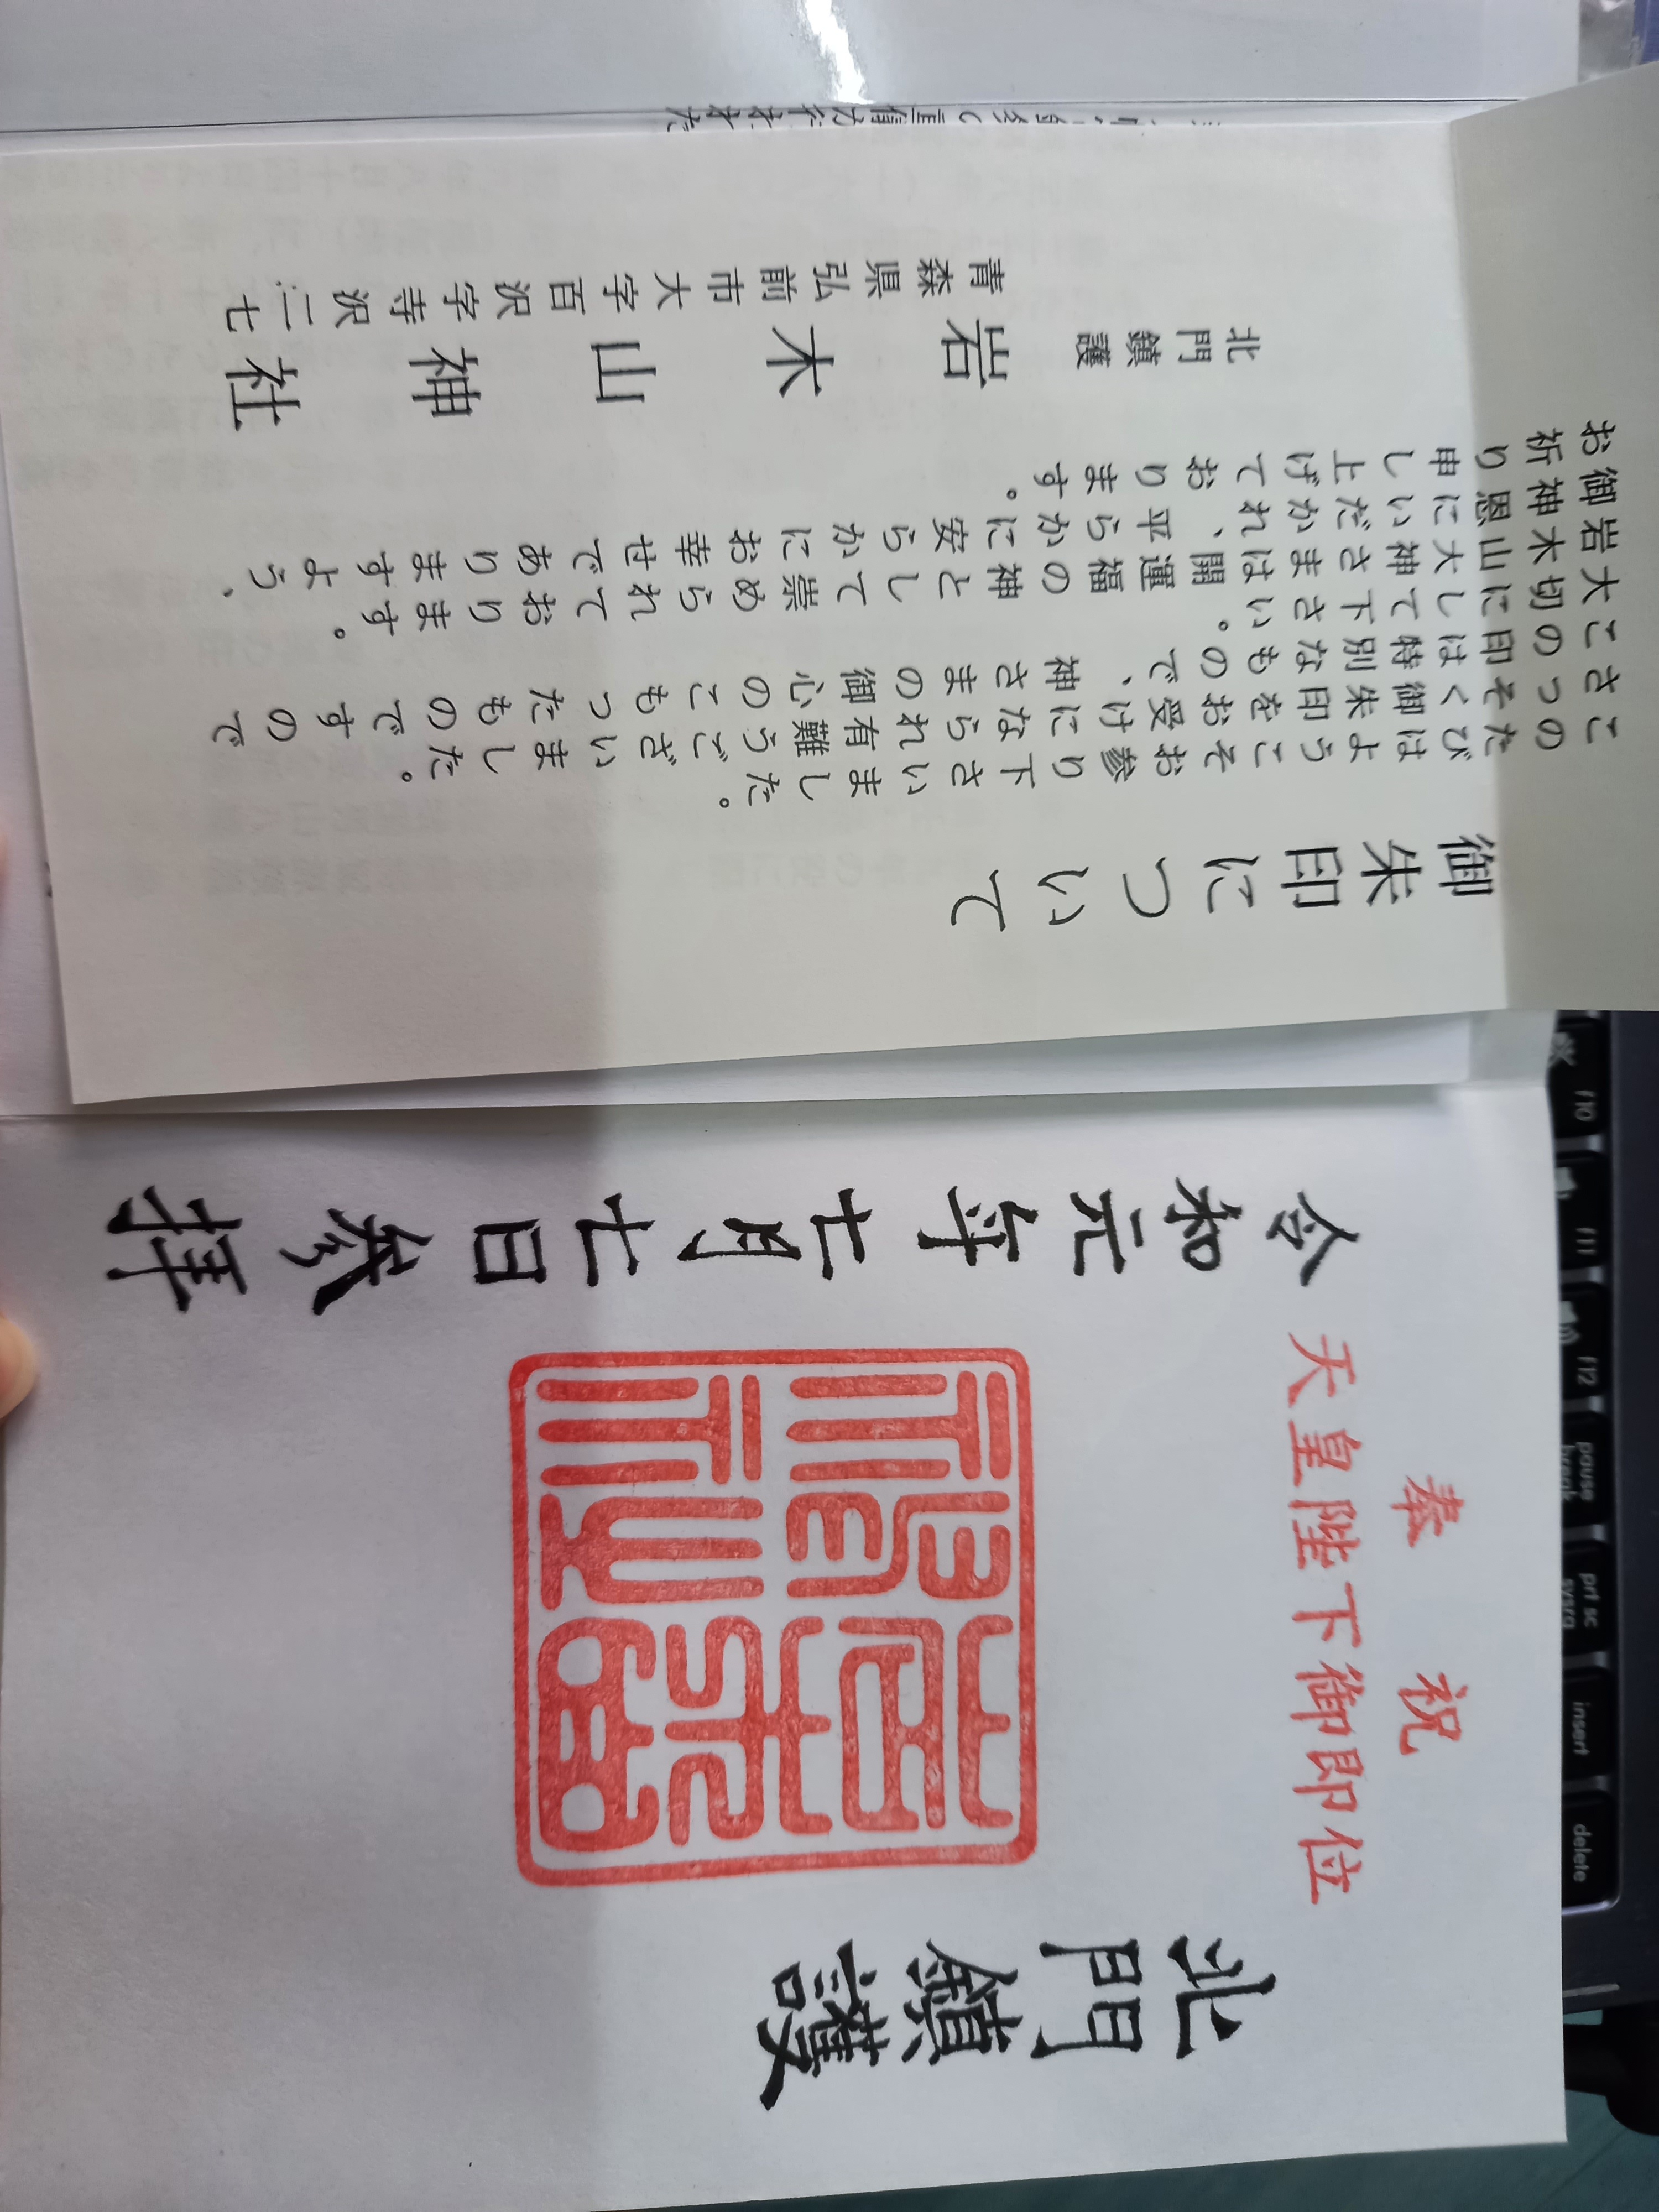 北門鎮護
奉祝
天皇陛下御即位
令和元年七月七日参拝
御朱印について
このたびはようこそお参り下さいました。
さつそく御朱印をお受けになられ有難うございました。
この印は特別なもので、神さまの御心のこもつたものですので
大切にして下さい。
岩木山大神さまは開運福の神として崇められております。
御神恩にいだかれ、平らかに安らかにお幸せでありますよう、
お祈り申し上げております。
北門鎮護
岩木山神社
青森県弘前市大字百沢字寺沢二七
f10
f11
f12
pause
break
prt sc
sysrq
insert
delete